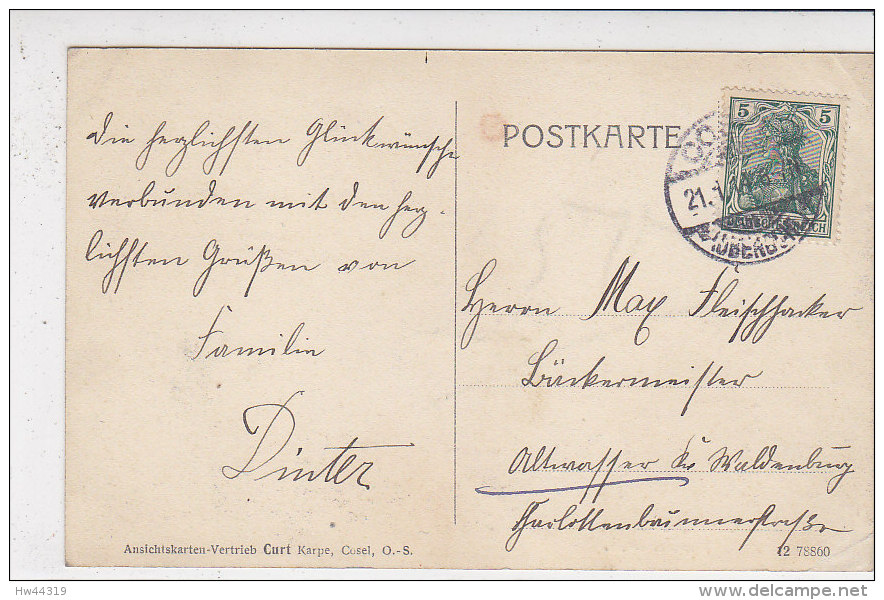 Die herzlichsten Glückwünsche
verbunden mit den herz-
lichsten Grüßen von
Familie
Dinter
Ansichtskarten-Vertrieb Curt Karpe, Cosel, O.-S.
POSTKARTE
5 5
DEUTSCHES REICH
21.
Herrn Max Fleischhacker
Bäckermeister
Altwasser Kr Waldenburg
Charlottenbrunnerstraße
12 78860
Hw44319
delcampe.net